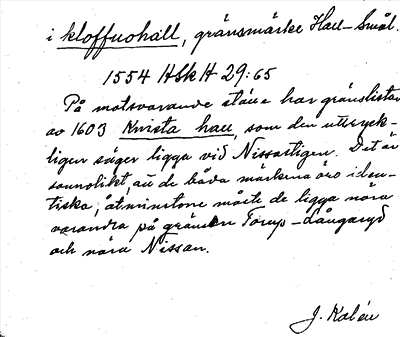 i kloffuohall, gränsmärke Hall-Smål.
1554 HSkH 29:65
På motsvarande ställe har gränslistan
av 1603 Knista hall, som den uttryck-
ligen säger ligga vid Nissastigen. Det är
sannolikt, att de båda märkena äro iden-
tiska; åtminstone måste de ligga nära
varandra på gränsen Torup-Långaryd
och nära Nissan.
J. Kalén